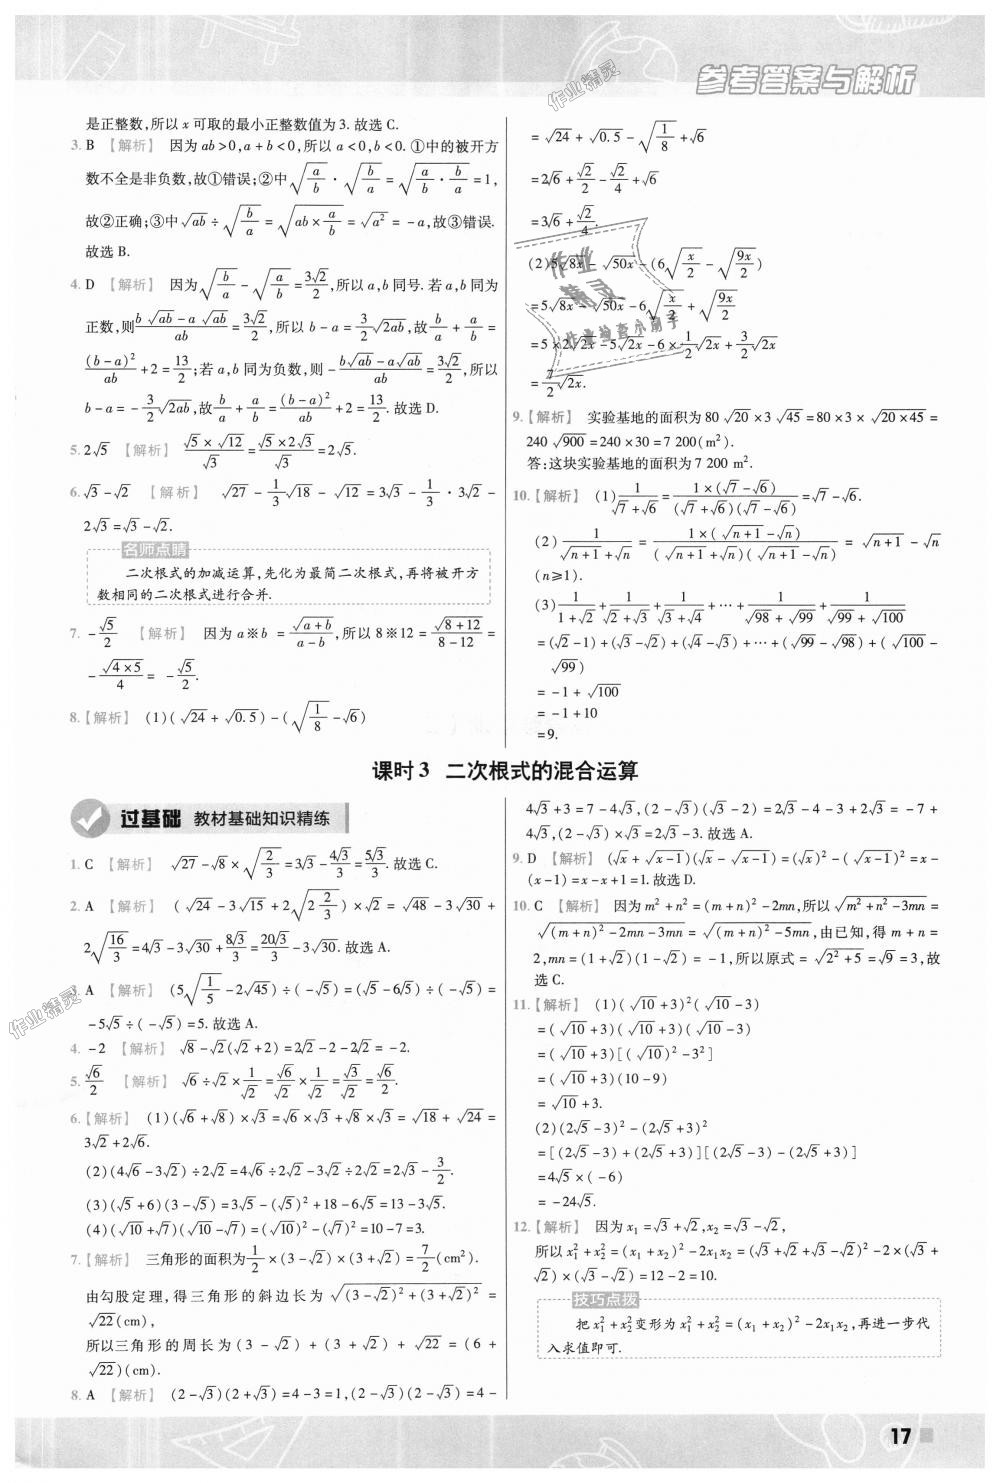 参考答案与解析
是正整数,所以 x 可取的最小正整数值为 3. 故选 C.
3. B 【解析】 因为 ab>0,a+b<0,所以 a<0,b<0. ①中的被开方
数不全是非负数,故①错误;②中√(a/b)·√(b/a)=√(a/b·b/a)=1,
故②正确;③中√ab÷√(b/a)=√(ab×a/b)=√a²=-a,故③错误.
故选 B.
4. D 【解析】 因为√(b/a)-√(a/b)=3√2/2,所以 a,b 同号. 若 a,b 同为
正数,则(b√ab-a√ab)/ab=3√2/2,所以 b-a=3/2√2ab,故b/a+a/b=
(b-a)²/ab+2=13/2;若 a,b 同为负数,则-(b√ab-a√ab)/ab=3√2/2,所以
b-a=-3/2√2ab,故b/a+a/b=(b-a)²/ab+2=13/2. 故选 D.
5. 2√5 【解析】 (√5×√12)/√3=(√5×2√3)/√3=2√5.
6. √3-√2 【解析】 √27-1/3√18-√12=3√3-1/3·3√2-
2√3=√3-√2.
名师点睛
二次根式的加减运算,先化为最简二次根式,再将被开方
数相同的二次根式进行合并.
7. -√5/2 【解析】 因为 a※b=√(a+b)/(a-b),所以 8※12=√(8+12)/(8-12)=
-√(4×5)/4=-√5/2.
8.【解析】 (1)(√24+√0.5)-(√(1/8)-√6)
=√24+√0.5-√(1/8)+√6
=2√6+√2/2-√2/4+√6
=3√6+√2/4.
(2)5√8x-√50x-(6√(x/2)-√(9x/2))
=5√8x-√50x-6√(x/2)+√(9x/2)
=5×2√2x-5√2x-6×1/2√2x+3/2√2x
=7/2√2x.
9.【解析】 实验基地的面积为 80√20×3√45=80×3×√(20×45)=
240√900=240×30=7 200(m²).
答:这块实验基地的面积为 7 200 m².
10.【解析】 (1)1/(√7+√6)=1×(√7-√6)/((√7+√6)(√7-√6))=√7-√6.
(2)1/(√(n+1)+√n)=1×(√(n+1)-√n)/((√(n+1)+√n)(√(n+1)-√n))=√(n+1)-√n
(n≥1).
(3)1/(1+√2)+1/(√2+√3)+1/(√3+√4)+…+1/(√98+√99)+1/(√99+√100)
=(√2-1)+(√3-√2)+(√4-√3)+…+(√99-√98)+(√100-
√99)
=-1+√100
=-1+10
=9.
课时 3 二次根式的混合运算
过基础 教材基础知识精练
1. C 【解析】 √27-√8×√(2/3)=3√3-4√3/3=5√3/3. 故选 C.
2. A 【解析】 (√24-3√15+2√(2 2/3))×√2=√48-3√30+
2√(16/3)=4√3-3√30+8√3/3=20√3/3-3√30. 故选 A.
3. A 【解析】 (5√(1/5)-2√45)÷(-√5)=(√5-6√5)÷(-√5)=
-5√5÷(-√5)=5. 故选 A.
4. -2 【解析】 √8-√2(√2+2)=2√2-2-2√2=-2.
5. √6/2 【解析】 √6÷√2×1/√2=√6/√2×1/√2=√3/√2=√6/2.
6.【解析】 (1)(√6+√8)×√3=√6×√3+√8×√3=√18+√24=
3√2+2√6.
(2)(4√6-3√2)÷2√2=4√6÷2√2-3√2÷2√2=2√3-3/2.
(3)(√5+6)(3-√5)=3√5-(√5)²+18-6√5=13-3√5.
(4)(√10+√7)(√10-√7)=(√10)²-(√7)²=10-7=3.
7.【解析】 三角形的面积为1/2×(3-√2)×(3+√2)=7/2(cm²).
由勾股定理,得三角形的斜边长为√((3-√2)²+(3+√2)²)=
√22(cm),
所以三角形的周长为(3-√2)+(3+√2)+√22=(6+
√22)(cm).
8. A 【解析】 (2-√3)(2+√3)=4-3=1,(2-√3)(2-√3)=4-
4√3+3=7-4√3,(2-√3)(√3-2)=2√3-4-3+2√3=-7+
4√3,(2-√3)×√3=2√3-3. 故选 A.
9. D 【解析】 (√x+√(x-1))(√x-√(x-1))=(√x)²-(√(x-1))²=x-
(x-1)=x-x+1=1. 故选 D.
10. C 【解析】 因为 m²+n²=(m+n)²-2mn,所以√(m²+n²-3mn)=
√((m+n)²-2mn-3mn)=√((m+n)²-5mn),由已知,得 m+n=
2,mn=(1+√2)(1-√2)=-1,所以原式=√(2²+5)=√9=3,故
选 C.
11.【解析】 (1)(√10+3)²(√10-3)
=(√10+3)(√10+3)(√10-3)
=(√10+3)[(√10)²-3²]
=(√10+3)(10-9)
=√10+3.
(2)(2√5-3)²-(2√5+3)²
=[(2√5-3)+(2√5+3)][(2√5-3)-(2√5+3)]
=4√5×(-6)
=-24√5.
12.【解析】 因为 x₁=√3+√2,x₂=√3-√2,
所以 x₁²+x₂²=(x₁+x₂)²-2x₁x₂=(√3+√2+√3-√2)²-2×(√3+
√2)×(√3-√2)=12-2=10.
技巧点拨
把 x₁²+x₂²变形为 x₁²+x₂²=(x₁+x₂)²-2x₁x₂,再进一步代
入求值即可.
17
作业精灵
作业精灵
作业
精灵
作业检查小助手